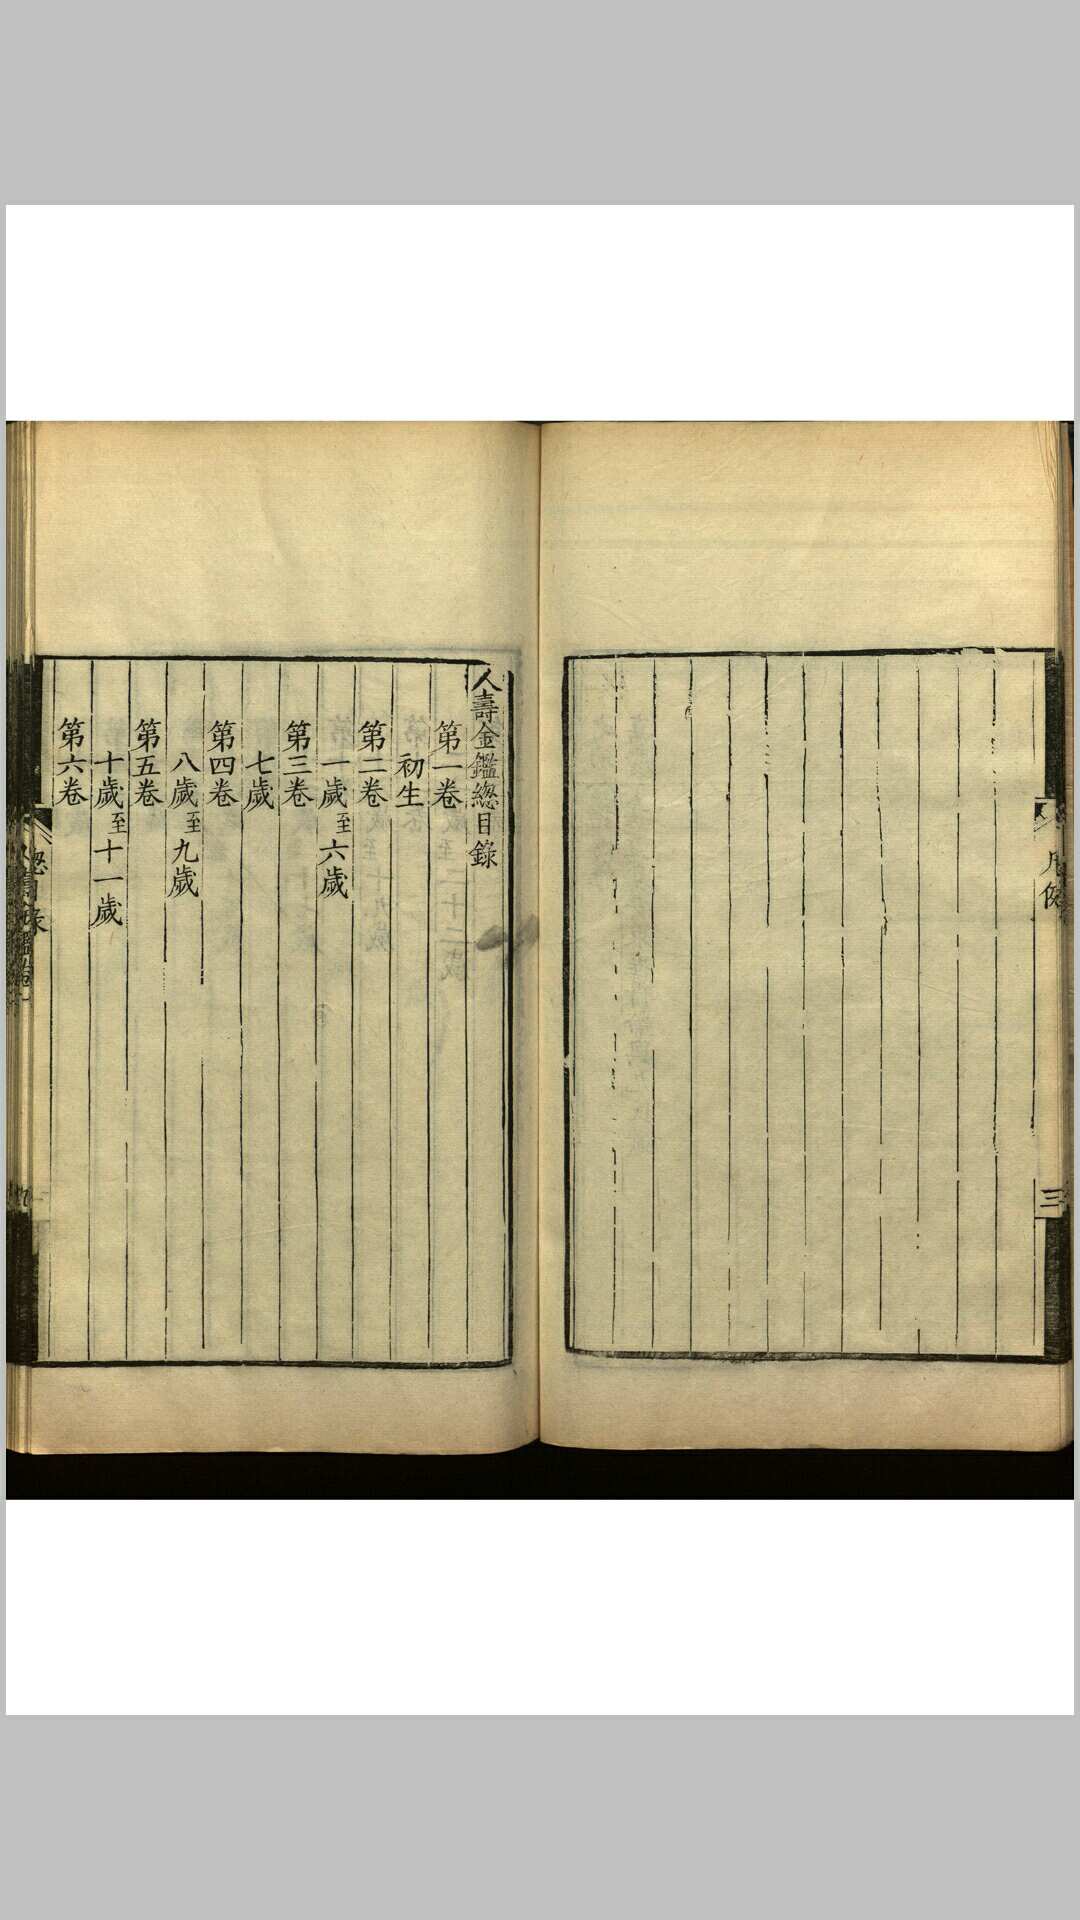 凡例
三
人壽金鑑緫目錄
第一卷
初生
第二卷
一歲至六歲
第三卷
七歲
第四卷
八歲至九歲
第五卷
十歲至十一歲
第六卷
緫目錄